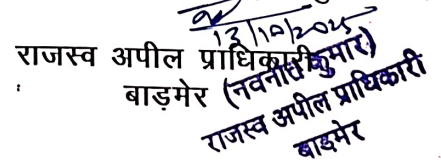 13/10/2025
राजस्व अपील प्राधिकारी
बाड़मेर
(नवनीत कुमार)
राजस्व अपील प्राधिकारी
बाड़मेर